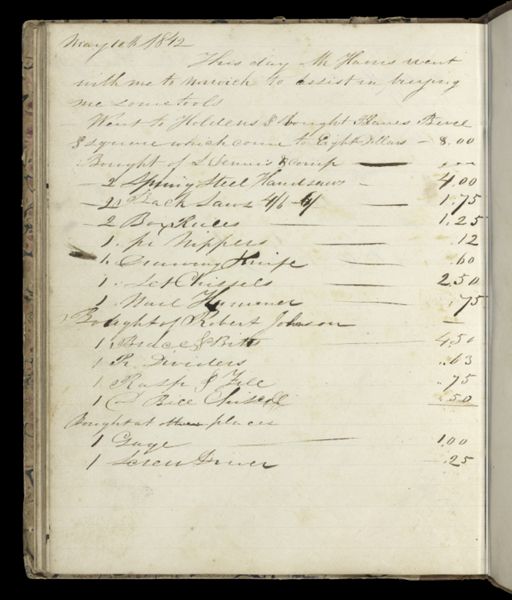 May 10th 1842
This day Mr Harris went
with me to Norwich to assist in buying
me some tools
Went to Holdens & bought Planes Bevel
& square which come to Eight Dollars — 8.00
Bought of & comp
2 Spring Steel Handsaws — 4.00
2 Back Saws — 1.75
2 Box Rules — 1.25
1 pr Nippers — .12
1 Drawing Knife — .60
1 Set Chissels — 2.50
1 Nail Hammer — .75
Bought of Robert Johnson
1 Brace & Bitts — 4.50
1 Pr. Dividers .63
1 Rasp & File .75
1 Chissell .50
Bought at other places
1 Gage — 1.00
1 Screw Driver — .25